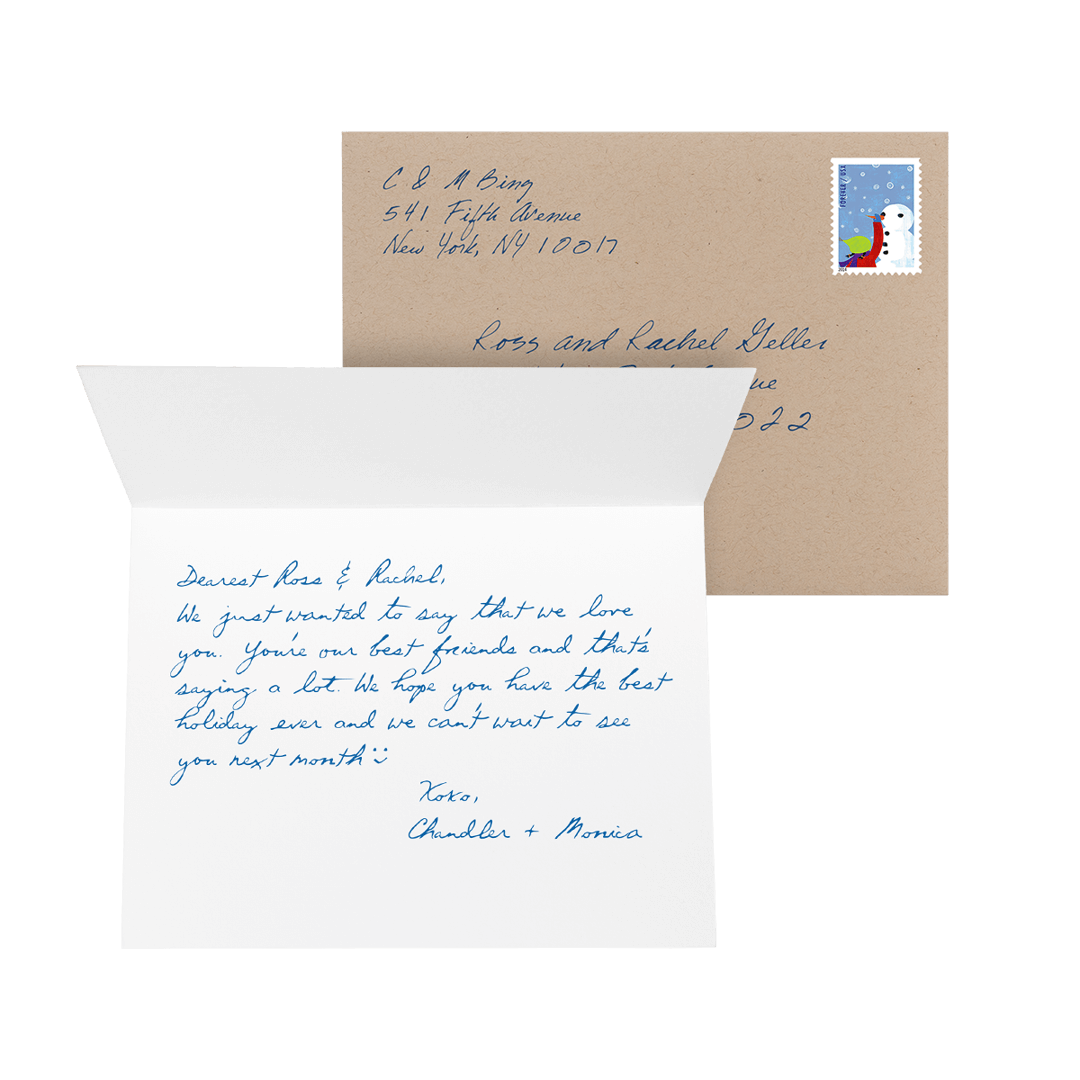 C & M Bing
541 Fifth Avenue
New York, NY 10017
FOREVER / USA
2014
Ross and Rachel Geller
022
Dearest Ross & Rachel,
We just wanted to say that we love
you. You're our best friends and that's
saying a lot. We hope you have the best
holiday ever and we can't wait to see
you next month :)
Xoxo,
Chandler + Monica